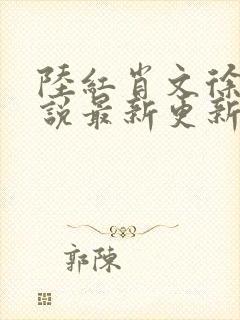 陸紅肖文徐
說最新更新
郭陳